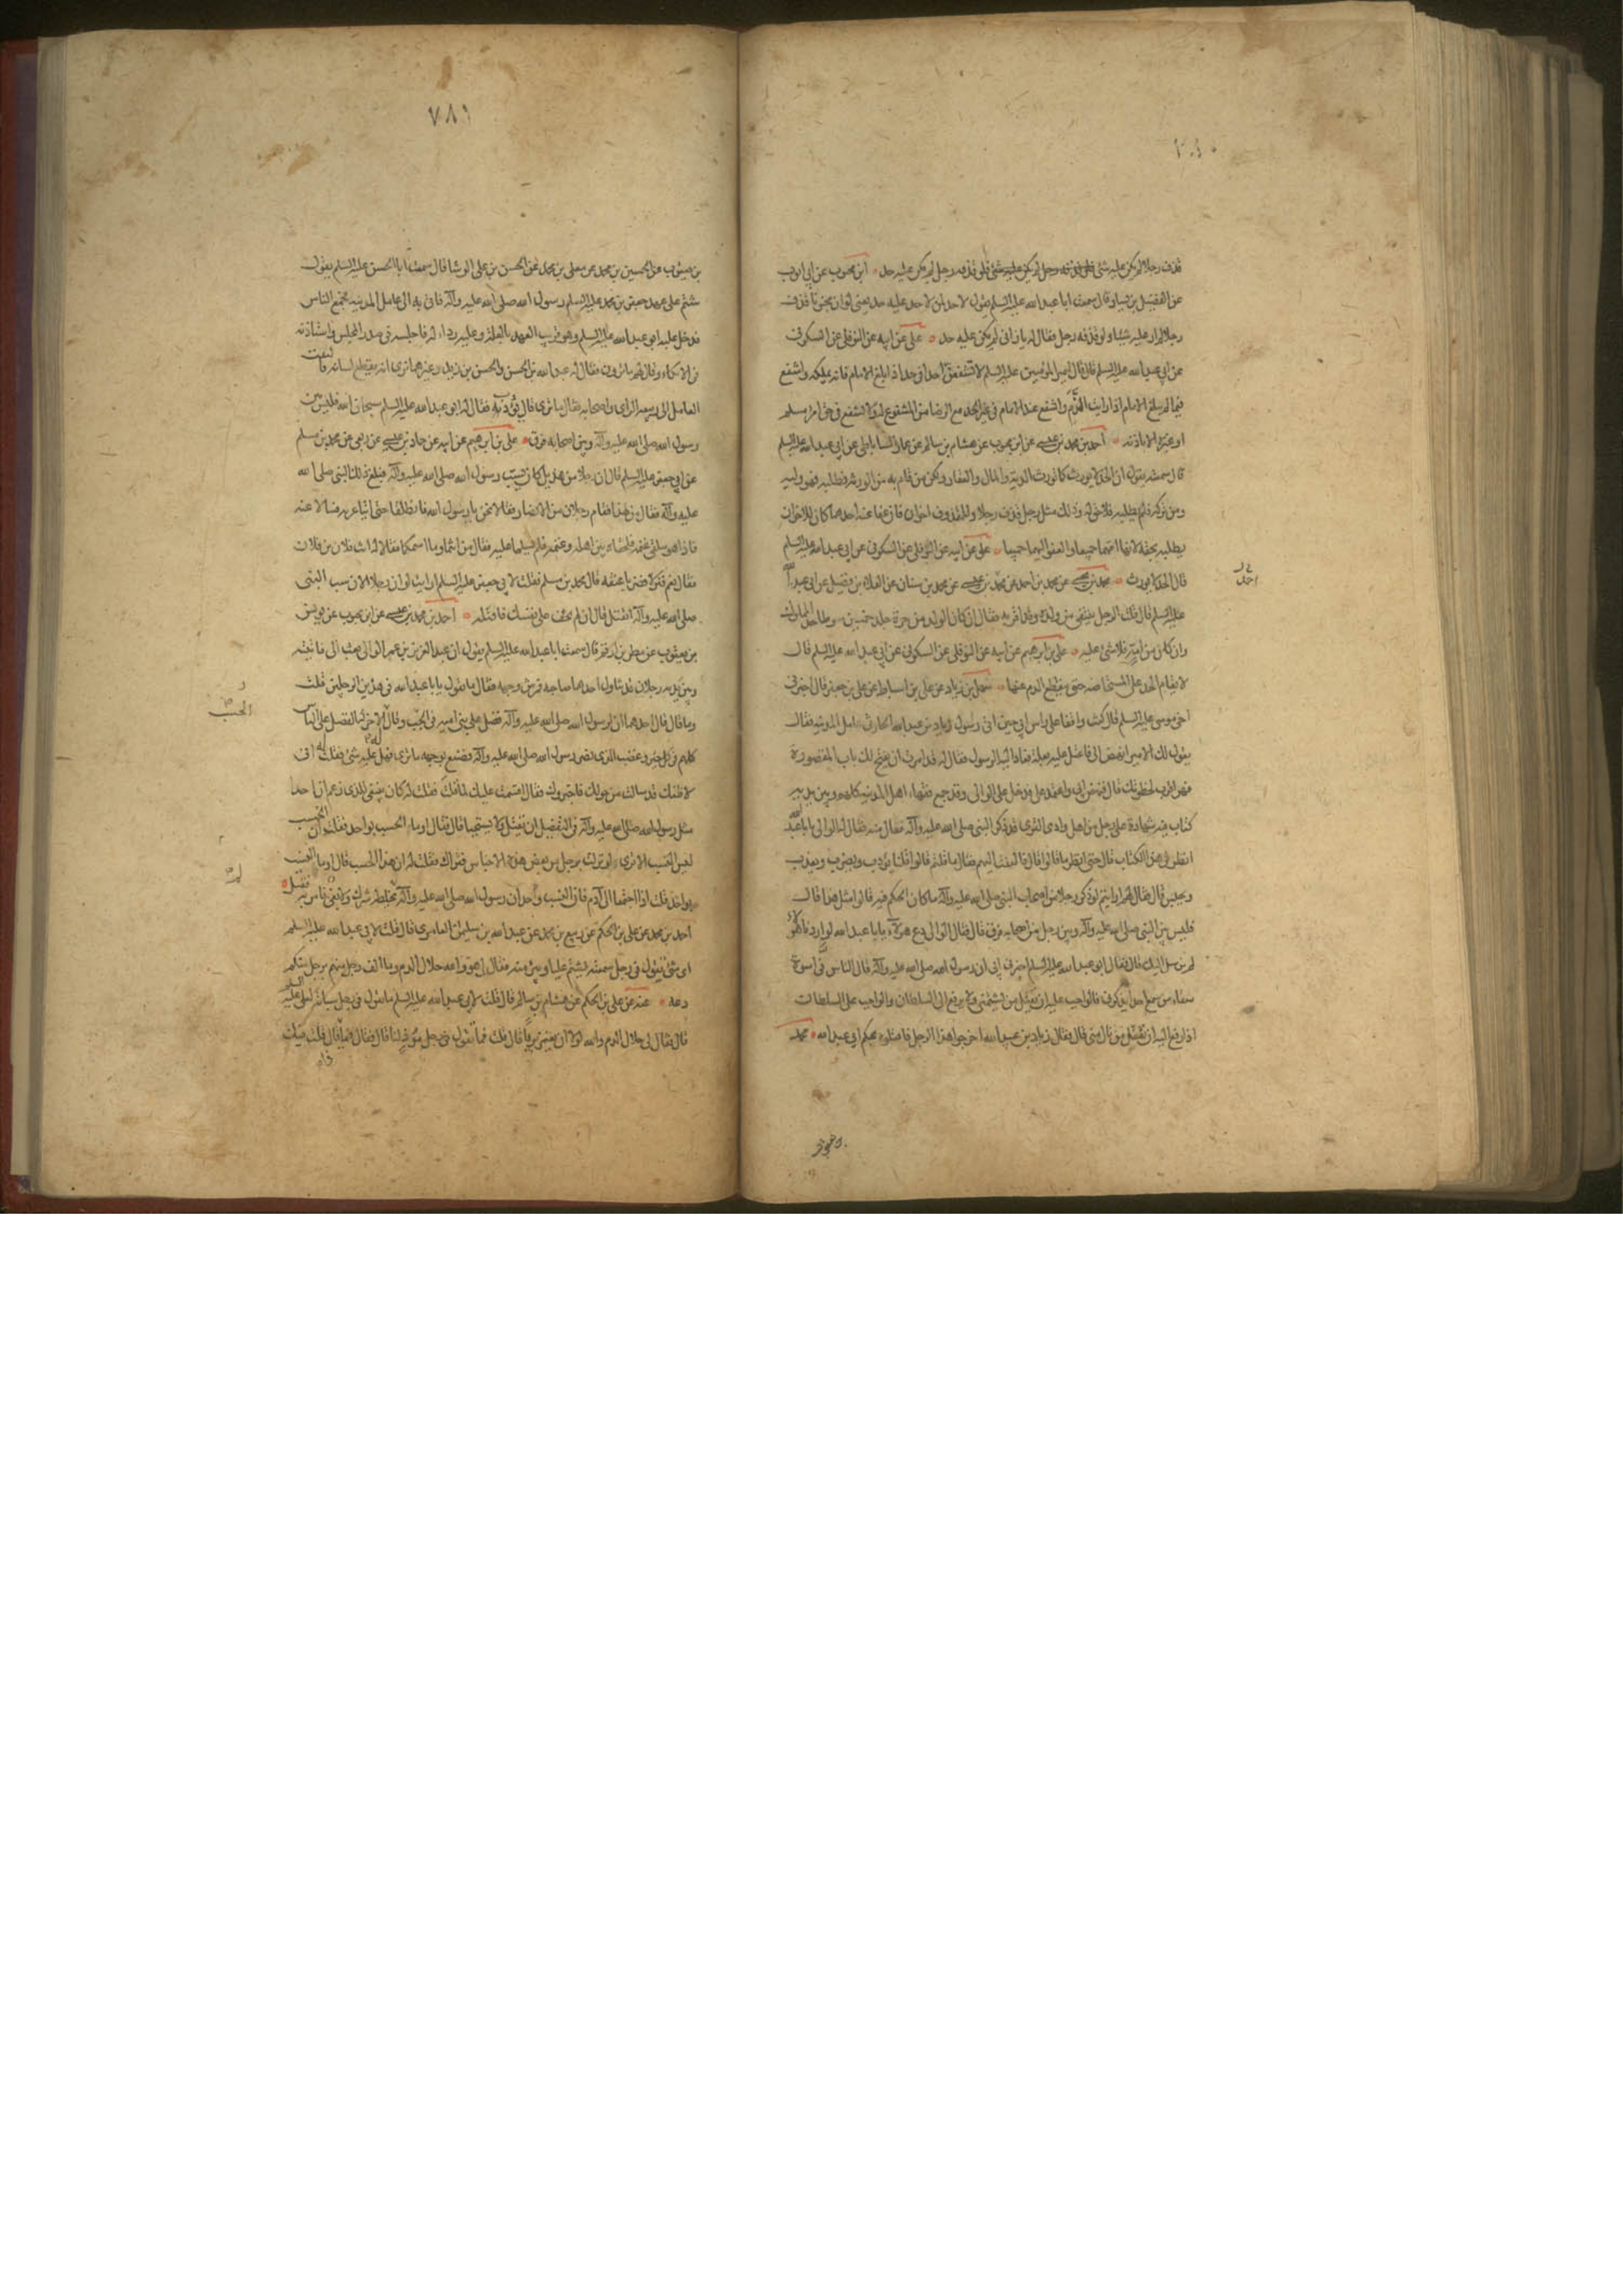 قذف رجلا لم يكن عليه شئ ولو قذفه رجل لم يكن عليه حد ابن محبوب عن ابي ايوب
عن الفضيل بن يسار قال سمعت ابا عبد الله عليه السلم يقول لا حد لمن لا حد عليه يعني لو ان مجنونا قذف
رجلا لم ار عليه شيئا ولو قذفه رجل فقال له يا زاني لم يكن عليه حد علي عن ابيه عن النوفلي عن السكوني
عن ابي عبد الله عليه السلم قال قال امير المؤمنين عليه السلم لا تشفعن احدا في حد اذا بلغ الامام فانه يملكه واشفع
فيما لم يبلغ الامام اذا رايت الندم واشفع عند الامام في غير الحد مع الرضا من المشفوع له ولا تشفع في حق امرئ مسلم
او غيره الا باذنه احمد بن محمد بن عيسى عن ابن محبوب عن هشام بن سالم عن عمار الساباطي عن ابي عبد الله عليه السلم
قال سمعته يقول ان الحد لا يورث كما تورث الدية والمال والعقار ولكن من قام به من الورثة وطلبه فهو وليه
ومن تركه فلم يطلبه فلا حق له وذلك مثل رجل قذف رجلا وللمقذوف اخوان فان عفا عنه احدهما كان للاخر ان
يطلبه بحقه لانها امهما جميعا والعفو اليهما جميعا علي عن ابيه عن النوفلي عن السكوني عن ابي عبد الله عليه السلم
قال الحد لا يورث محمد بن يحيى عن محمد بن احمد عن محمد بن عيسى عن محمد بن سنان عن العلاء بن فضيل عن ابي عبد الله
عليه السلم قال قلت الرجل ينتفي من ولده وقد اقر به فقال ان كان الولد من حرة جلد خمسين سوطا حد المملوك
وان كان من امة فلا شئ عليه علي بن ابرهيم عن ابيه عن النوفلي عن السكوني عن ابي عبد الله عليه السلم قال
لا يقام الحد على المستحاضة حتى ينقطع الدم عنها سهل بن زياد عن علي بن اسباط عن علي بن جعفر قال اخبرني
اخي موسى عليه السلم قال كنت واقفا على راس ابي حين اتى رسول زياد بن عبيد الله الحارثي عامل المدينة فقال
يقول لك الامير انهض الي فاعتل عليه بعلة فعاد اليه الرسول فقال له قد امرت ان يفتح لك باب المقصورة
فهو اقرب لخطوتك قال فنهض ابي واعتمد علي ودخل على الوالي وقد جمع فقهاء اهل المدينة كلهم وبين يديه
كتاب فيه شهادة على رجل من اهل وادي القرى قد ذكر النبي صلى الله عليه وآله فنال منه فقال له الوالي يا ابا عبد الله
انظر في هذا الكتاب قال حتى انظر ما قالوا قال فالتفت اليهم فقال ما قلتم قالوا قلنا يؤدب ويضرب ويعذب
ويحبس قال فقال لهم ارايتم لو ذكر رجلا من اصحاب النبي صلى الله عليه وآله ما كان الحكم فيه قالوا مثل هذا قال
فليس بين النبي صلى الله عليه وآله وبين رجل من اصحابه فرق قال فقال الوالي دع هؤلاء يا ابا عبد الله لو اردنا هؤلاء
لم نرسل اليك قال فقال ابو عبد الله عليه السلم اخبرني ابي ان رسول الله صلى الله عليه وآله قال الناس في اسوة
سواء من سمع احدا يذكرني فالواجب عليه ان يقتل من شتمني ولا يرفع الى السلطان والواجب على السلطان
اذا رفع اليه ان يقتل من نال مني قال فقال زياد بن عبيد الله اخرجوا هذا الرجل فاقتلوه بحكم ابي عبد الله محمد
٧٨١
بن يعقوب عن الحسين بن محمد عن معلى بن محمد عن الحسن بن علي الوشا قال سمعت ابا الحسن عليه السلم يقول
شتم على عهد جعفر بن محمد عليه السلم رسول الله صلى الله عليه وآله فاتي به الى عامل المدينة فجمع الناس
فدخل عليه ابو عبد الله عليه السلم وهو قريب العهد بالعلة وعليه رداء له فاجلسه في صدر المجلس واستاذنه
في الاتكاء وقال لهم ما ترون فقال له عبد الله بن الحسن والحسن بن زيد وغيرهما نرى ان يقطع لسانه فالتفت
العامل الى ربيعة الراي واصحابه فقال ما ترى قال يؤدب فقال له ابو عبد الله عليه السلم سبحان الله فليس بين
رسول الله صلى الله عليه وآله وبين اصحابه فرق علي بن ابرهيم عن ابيه عن حماد بن عيسى عن ربعي عن محمد بن مسلم
عن ابي جعفر عليه السلم قال ان رجلا من هذيل كان يسب رسول الله صلى الله عليه وآله فبلغ ذلك النبي صلى الله
عليه وآله فقال من لهذا فقام رجلان من الانصار فقالا نحن يا رسول الله فانطلقا حتى اتيا عربه فسالا عنه
فاذا هو يتلقى غنمه فلحقاه بين اهله وغنمه فلم يسلما عليه فقال من انتما وما اسمكما فقالا له انت فلان بن فلان
فقال نعم فنزلا فضربا عنقه قال محمد بن مسلم فقلت لابي جعفر عليه السلم ارايت لو ان رجلا الان سب النبي
صلى الله عليه وآله ايقتل قال ان لم تخف على نفسك فاقتله احمد بن محمد بن عيسى عن ابن محبوب عن يونس
بن يعقوب عن مطر بن ارقم قال سمعت ابا عبد الله عليه السلم يقول ان عبد العزيز بن عمر الوالي بعث الي فاتيته
وبين يديه رجلان قد تناول احدهما صاحبه فمرش وجهه فقال ما تقول يا ابا عبد الله في هذين الرجلين قلت
وما قالا قال قال احدهما ان لرسول الله صلى الله عليه وآله فضل على بني امية في الحسب وقال الاخر له الفضل على الناس
كلهم في كل خير وغضب الذي نصر رسول الله صلى الله عليه وآله فصنع بوجهه ما ترى فهل عليه شئ فقلت له اني
لاظنك قد سالت من حولك فاخبروك فقال اقسمت عليك لما قلت فقلت له كان ينبغي للذي زعم ان احدا
مثل رسول الله صلى الله عليه وآله في التفضيل ان يقتل ولا يستحيا قال فقال اوما الحسب بواحد فقلت ان الحسب
ليس النسب الا ترى لو نزلت برجل من بعض هذه الاجناس فقراك فقلت له ان هذا الحسب قال اوما النسب
بواحد قلت اذا اجتمعا الى آدم فان النسب واحد ان رسول الله صلى الله عليه وآله لم يخلطه شرك ولا بغي فامر به فقتل
احمد بن محمد عن علي بن الحكم عن ربيع بن محمد عن عبد الله بن سليمان العامري قال قلت لابي عبد الله عليه السلم
اي شئ تقول في رجل سمعته يشتم عليا ويبرئ منه فقال لي هو والله حلال الدم وما الف رجل منهم برجل منكم
دعه عنه عن علي بن الحكم عن هشام بن سالم قال قلت لابي عبد الله عليه السلم ما تقول في رجل سبابة لعلي عليه السلم
قال فقال لي حلال الدم والله لولا ان يعم بريا قال قلت فما تقول في رجل موذ لنا قال فقال فيما قال قلت فيك
الحسب